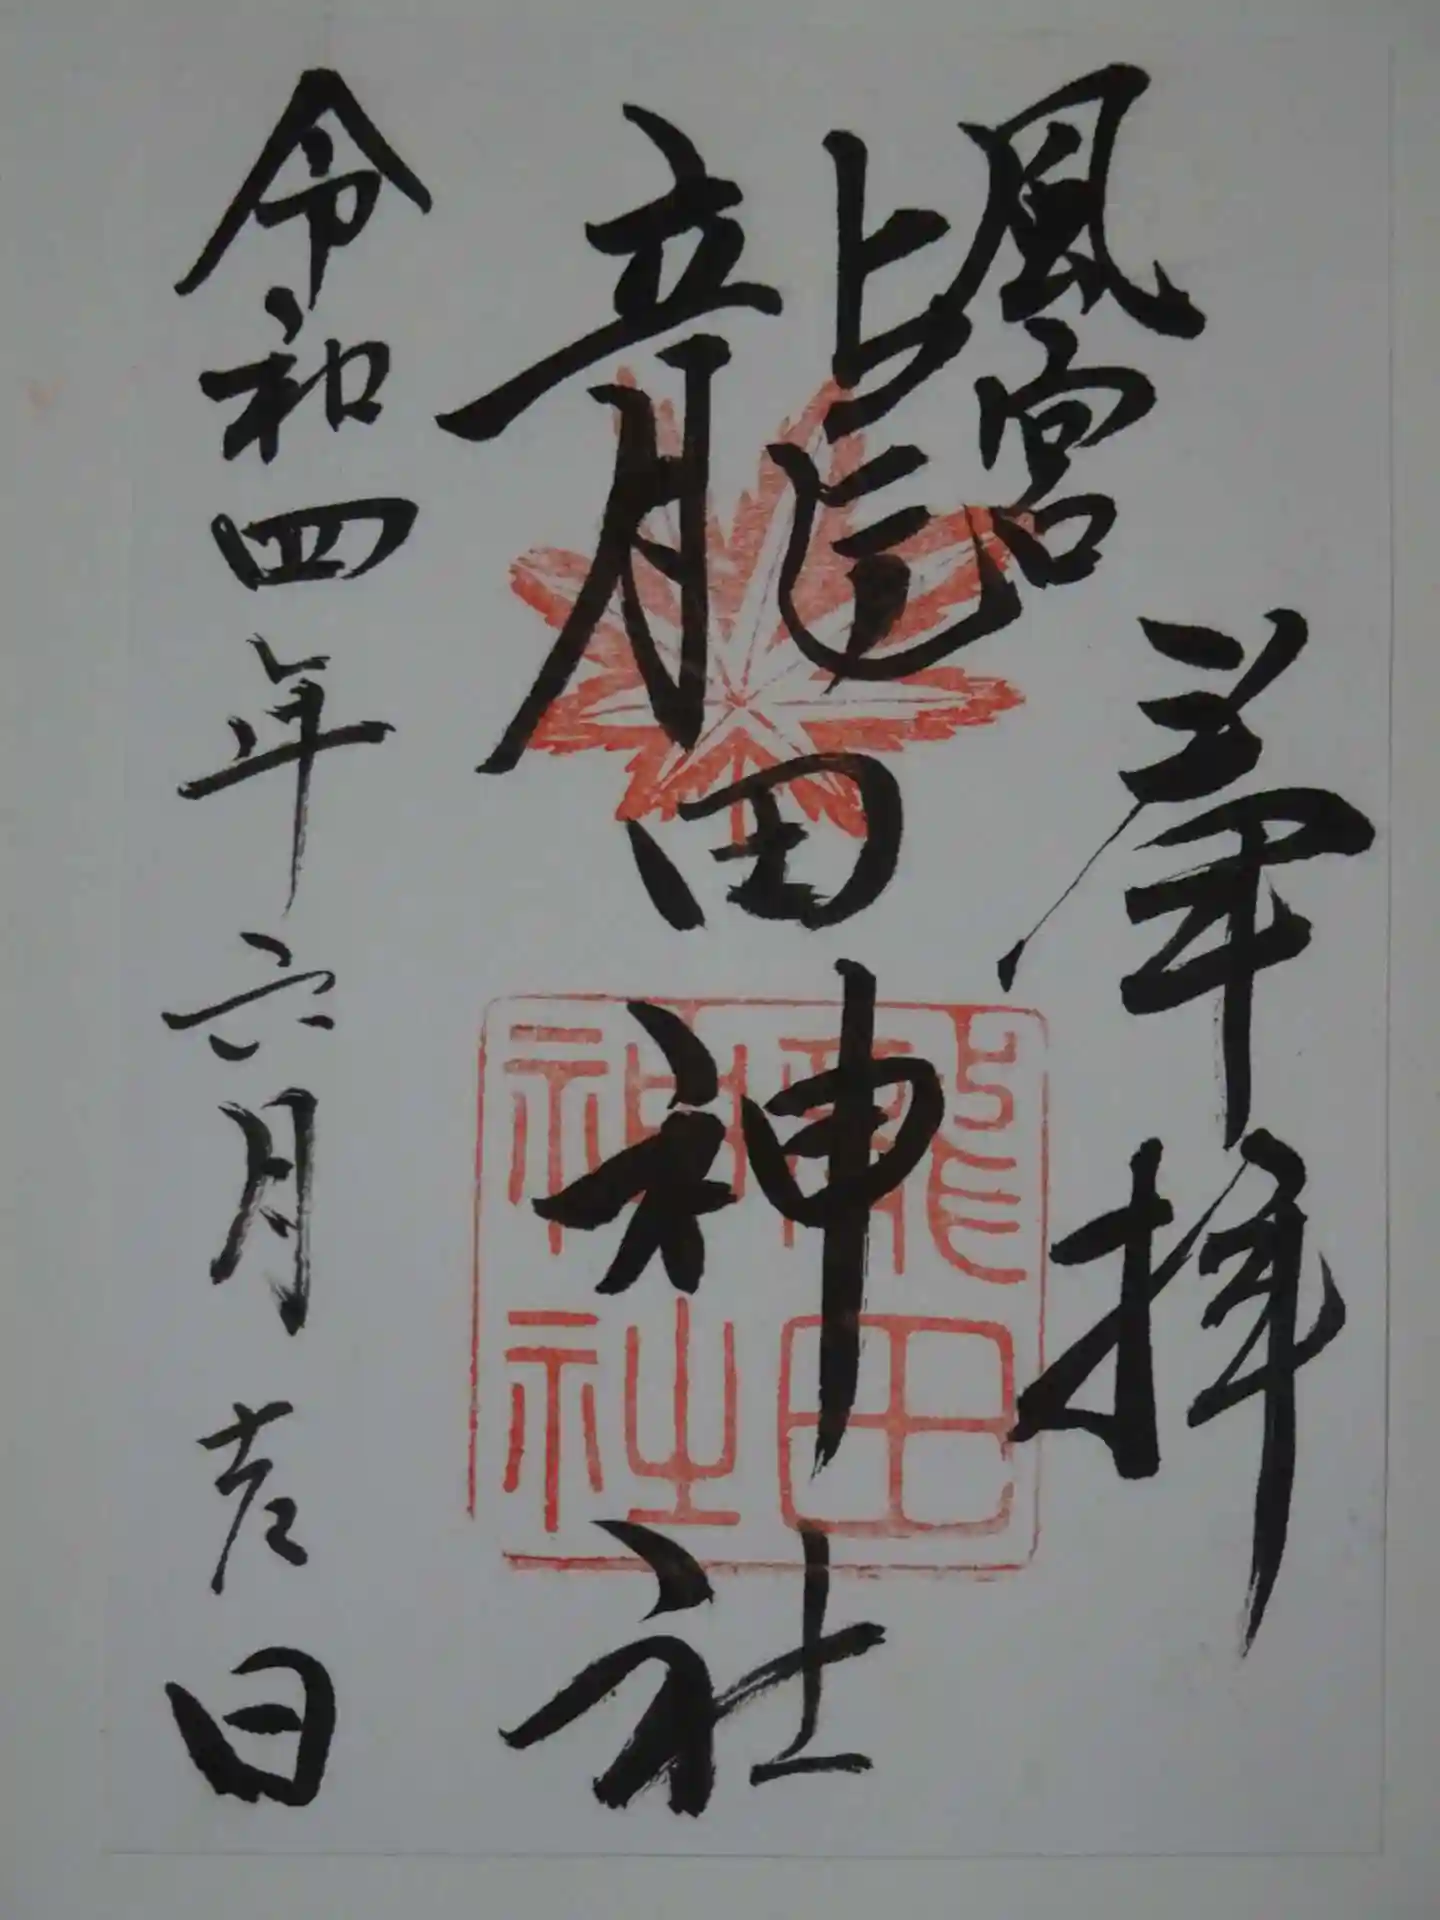 奉拝
風宮
龍田神社
龍田
神社
令和四年六月 日